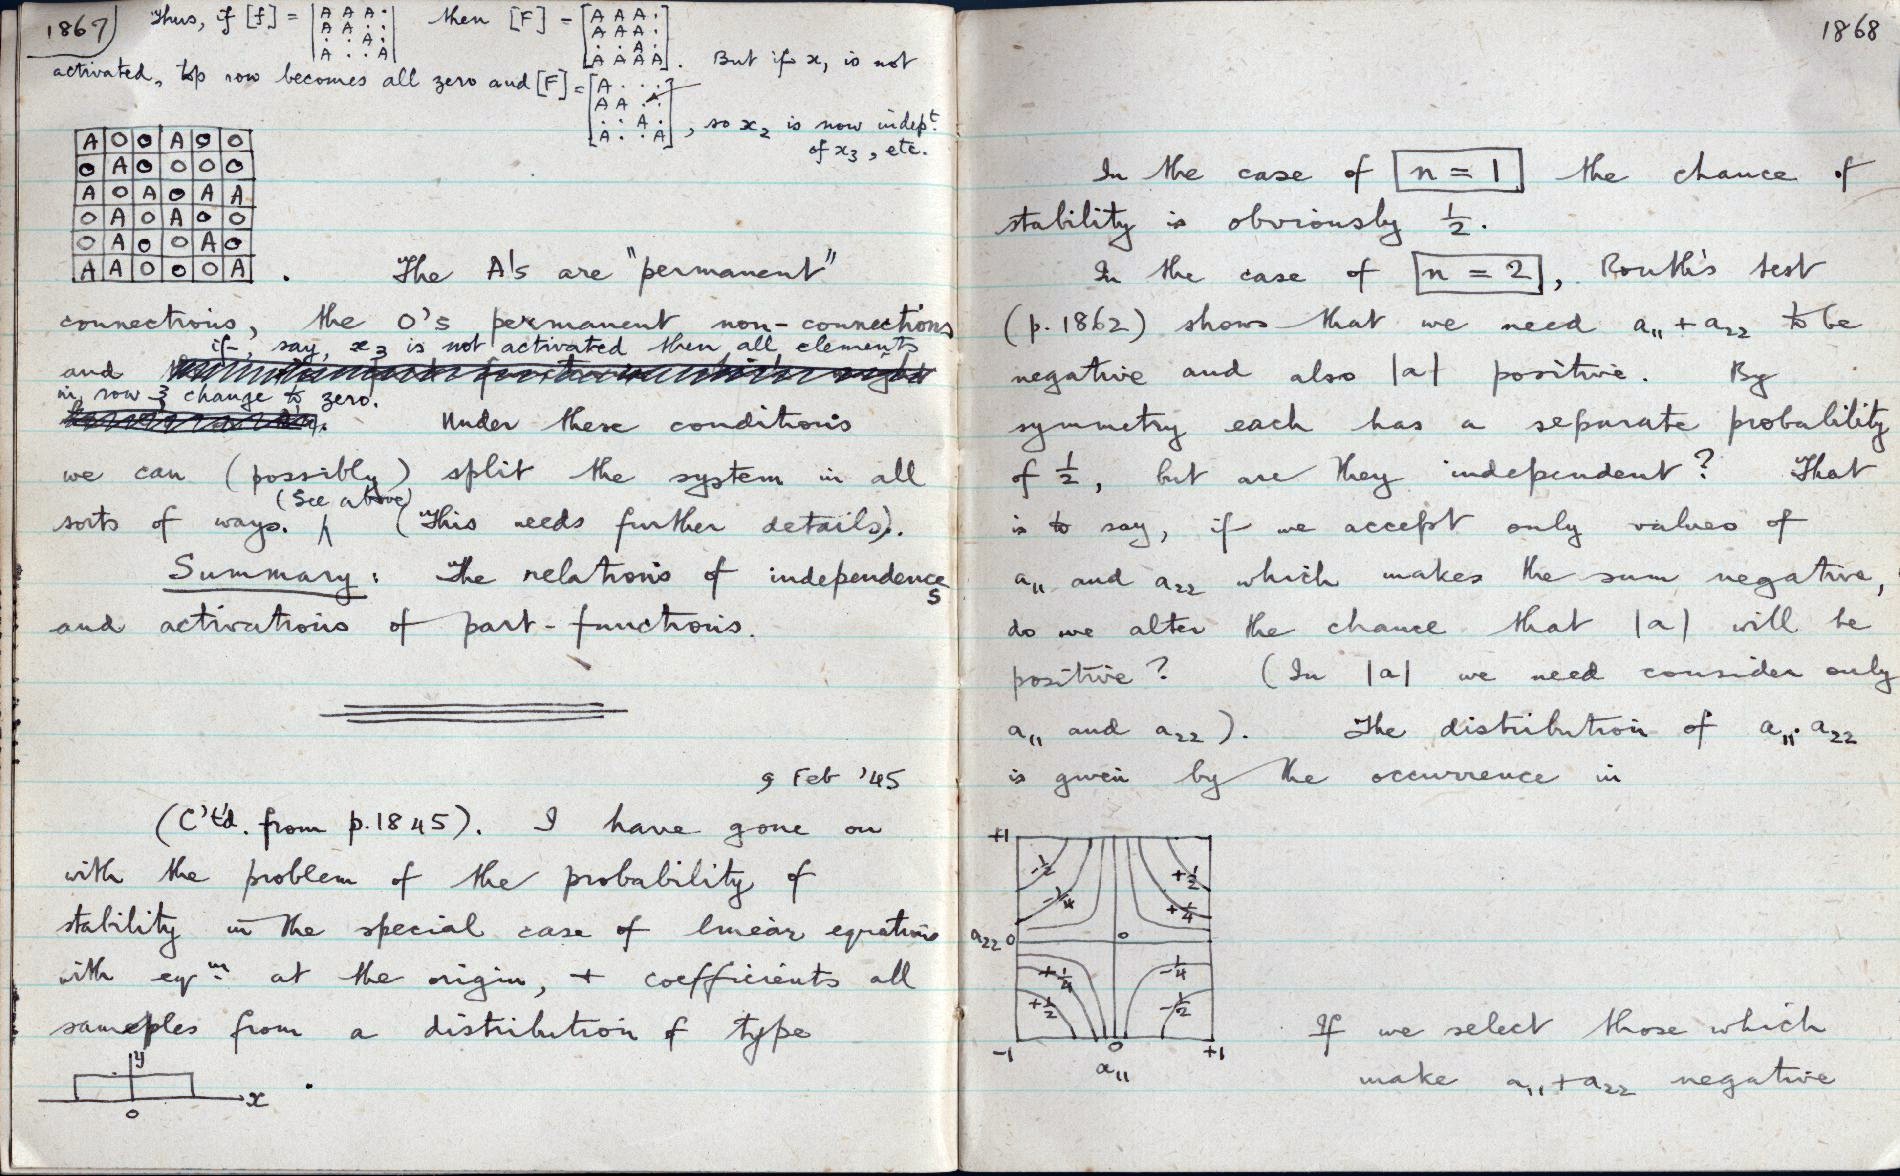 1867
Thus, if [f] = [A A A · / A A · · / · · A · / A · · A] then [F] = [A A A · / A A A · / · · A · / A A A A]. But if x₁ is not
activated, top row becomes all zero and [F] = [A · · · / A A · · / · · A · / A · · A], so x₂ is now indepᵗ
of x₃, etc.
A O O A O O
O A O O O O
A O A O A A
O A O A O O
O A O O A O
A A O O O A . The A's are "permanent"
connections, the O's permanent non-connections
if, say, x₃ is not activated then all elements
and
in row 3 change to zero.
Under these conditions
we can (possibly) split the system in all
(See above)
sorts of ways. ∧ (This needs further details).
Summary: The relations of independences
and activations of part-functions.
9 Feb '45
(C't'd. from p.1845). I have gone on
with the problem of the probability of
stability in the special case of linear equations
with eqᵐ at the origin, + coefficients all
samples from a distribution of type
y
x
0
.
1868
In the case of n = 1 the chance of
stability is obviously ½.
In the case of n = 2, Routh's test
(p. 1862) shows that we need a₁₁ + a₂₂ to be
negative and also |a| positive. By
symmetry each has a separate probability
of ½, but are they independent? That
is to say, if we accept only values of
a₁₁ and a₂₂ which makes the sum negative,
do we alter the chance that |a| will be
positive? (In |a| we need consider only
a₁₁ and a₂₂). The distribution of a₁₁.a₂₂
is given by the occurrence in
+1
-½ +½
-¼ +¼
a₂₂ 0 0
+¼ -¼
+½ -½
-1 0 +1
a₁₁
If we select those which
make a₁₁ + a₂₂ negative